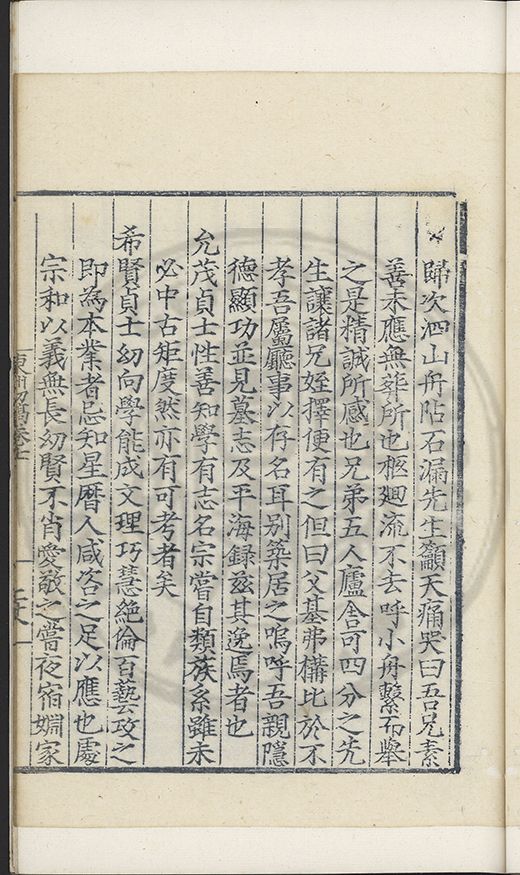 歸次泗山舟阽石漏先生籲天痛哭曰吾兄素
善未應無葬所也柩廻流不去呼小舟繫而舉
之是精誠所感也兄弟五人廬舍可四分之先
生讓諸兄姪擇便有之但曰父基弗構比於不
孝吾屬廳事以存名耳別築居之嗚呼吾親隱
德顯功並見墓志及平海録兹其逸焉者也
允茂貞士性善知學有志名宗嘗自類族系雖未
必中古矩度然亦有可考者矣
希賢貞士幼向學能成文理巧慧絶倫百藝攻之
即為本業者忌知星曆人咸咨之足以應也處
宗和以義無長幼賢不肖愛敬之嘗夜宿姻家